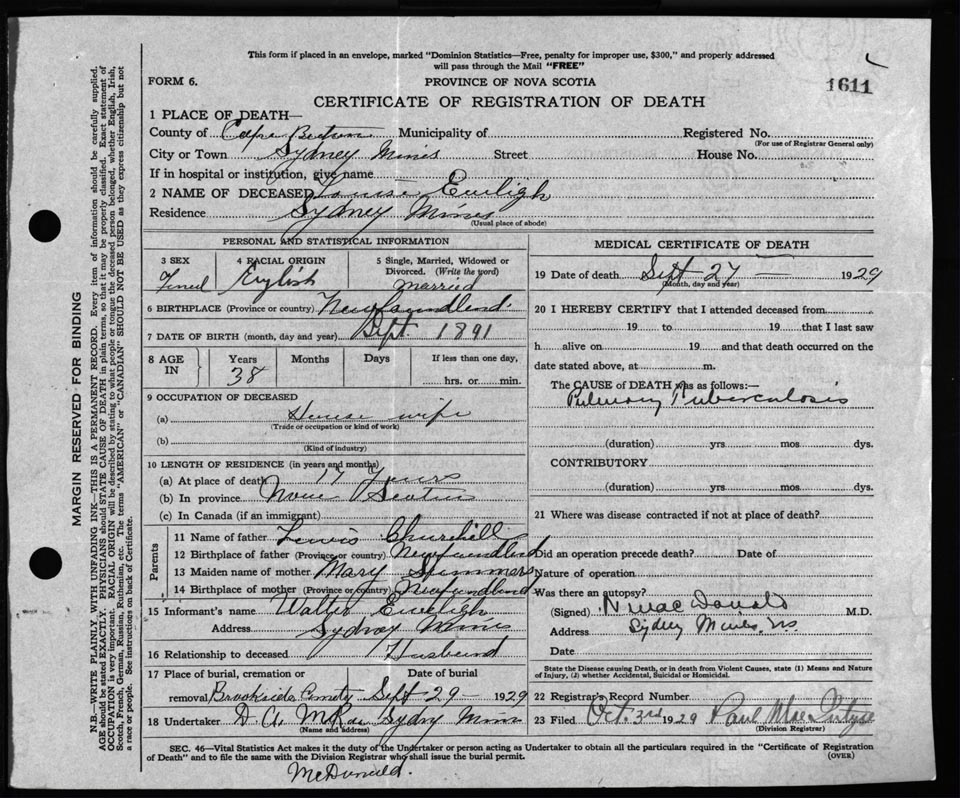 This form if placed in an envelope, marked "Dominion Statistics—Free, penalty for improper use, $300," and properly addressed
will pass through the Mail "FREE"
FORM 6.
PROVINCE OF NOVA SCOTIA
1611
CERTIFICATE OF REGISTRATION OF DEATH
1 PLACE OF DEATH—
County of Cape Breton Municipality of Registered No.
(For use of Registrar General only)
City or Town Sydney Mines Street House No.
If in hospital or institution, give name
2 NAME OF DECEASED Louise
Residence Sydney Mines
(Usual place of abode)
PERSONAL AND STATISTICAL INFORMATION
3 SEX 4 RACIAL ORIGIN 5 Single, Married, Widowed or
Divorced. (Write the word)
English Married
6 BIRTHPLACE (Province or country) Newfoundland
7 DATE OF BIRTH (month, day and year) Sept. 1891
8 AGE IN Years Months Days If less than one day,
38 hrs. or min.
9 OCCUPATION OF DECEASED
(a) House wife
(Trade or occupation or kind of work)
(b)
(Kind of industry)
10 LENGTH OF RESIDENCE (in years and months)
(a) At place of death 17 years
(b) In province Nova Scotia
(c) In Canada (if an immigrant)
Parents
11 Name of father Lewis Churchill
12 Birthplace of father (Province or country) Newfoundland
13 Maiden name of mother Mary Summers
14 Birthplace of mother (Province or country) Newfoundland
15 Informant's name Walter
Address Sydney Mines
16 Relationship to deceased Husband
17 Place of burial, cremation or Date of burial
removal Brookside Cemetery Sept 29 — 1929
18 Undertaker D. A. McRae Sydney Mines
(Name and address)
MEDICAL CERTIFICATE OF DEATH
19 Date of death Sept 27 — 1929
(Month, day and year)
20 I HEREBY CERTIFY that I attended deceased from
19 to 19 that I last saw
h alive on 19 and that death occurred on the
date stated above, at m.
The CAUSE of DEATH was as follows:—
Pulmonary Tuberculosis
(duration) yrs mos dys.
CONTRIBUTORY
(duration) yrs mos dys.
21 Where was disease contracted if not at place of death?
Did an operation precede death? Date of
Nature of operation
Was there an autopsy?
(Signed) MacDonald M.D.
Address Sydney Mines, N.S.
Date
State the Disease causing Death, or in death from Violent Causes, state (1) Means and Nature
of Injury, (2) whether Accidental, Suicidal or Homicidal.
22 Registrar's Record Number
23 Filed Oct. 3rd 1929 Paul MacIntyre
(Division Registrar)
SEC. 46—Vital Statistics Act makes it the duty of the Undertaker or person acting as Undertaker to obtain all the particulars required in the "Certificate of Registration
of Death" and to file the same with the Division Registrar who shall issue the burial permit.
(OVER)
McDonald.
MARGIN RESERVED FOR BINDING
N.B.—WRITE PLAINLY WITH UNFADING INK—THIS IS A PERMANENT RECORD. Every item of information should be carefully supplied.
AGE should be stated EXACTLY. PHYSICIANS should STATE CAUSE OF DEATH in plain terms, so that it may be properly classified. Exact statement of
OCCUPATION is very important. RACIAL ORIGIN will be described by stating to what people or tongue the deceased person belonged, whether English, Irish,
Scotch, French, German, Russian, Ruthenian, etc. The terms "AMERICAN" or "CANADIAN" SHOULD NOT BE USED as they express citizenship but not
a race or people. See instructions on back of Certificate.